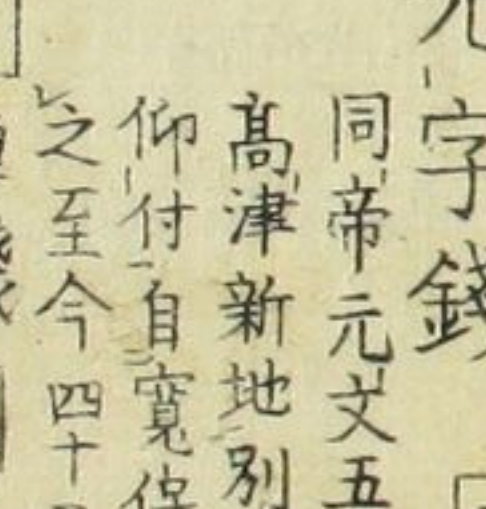 元字錢
同帝元文五
髙津新地別
仰付自寬保
之至今四十